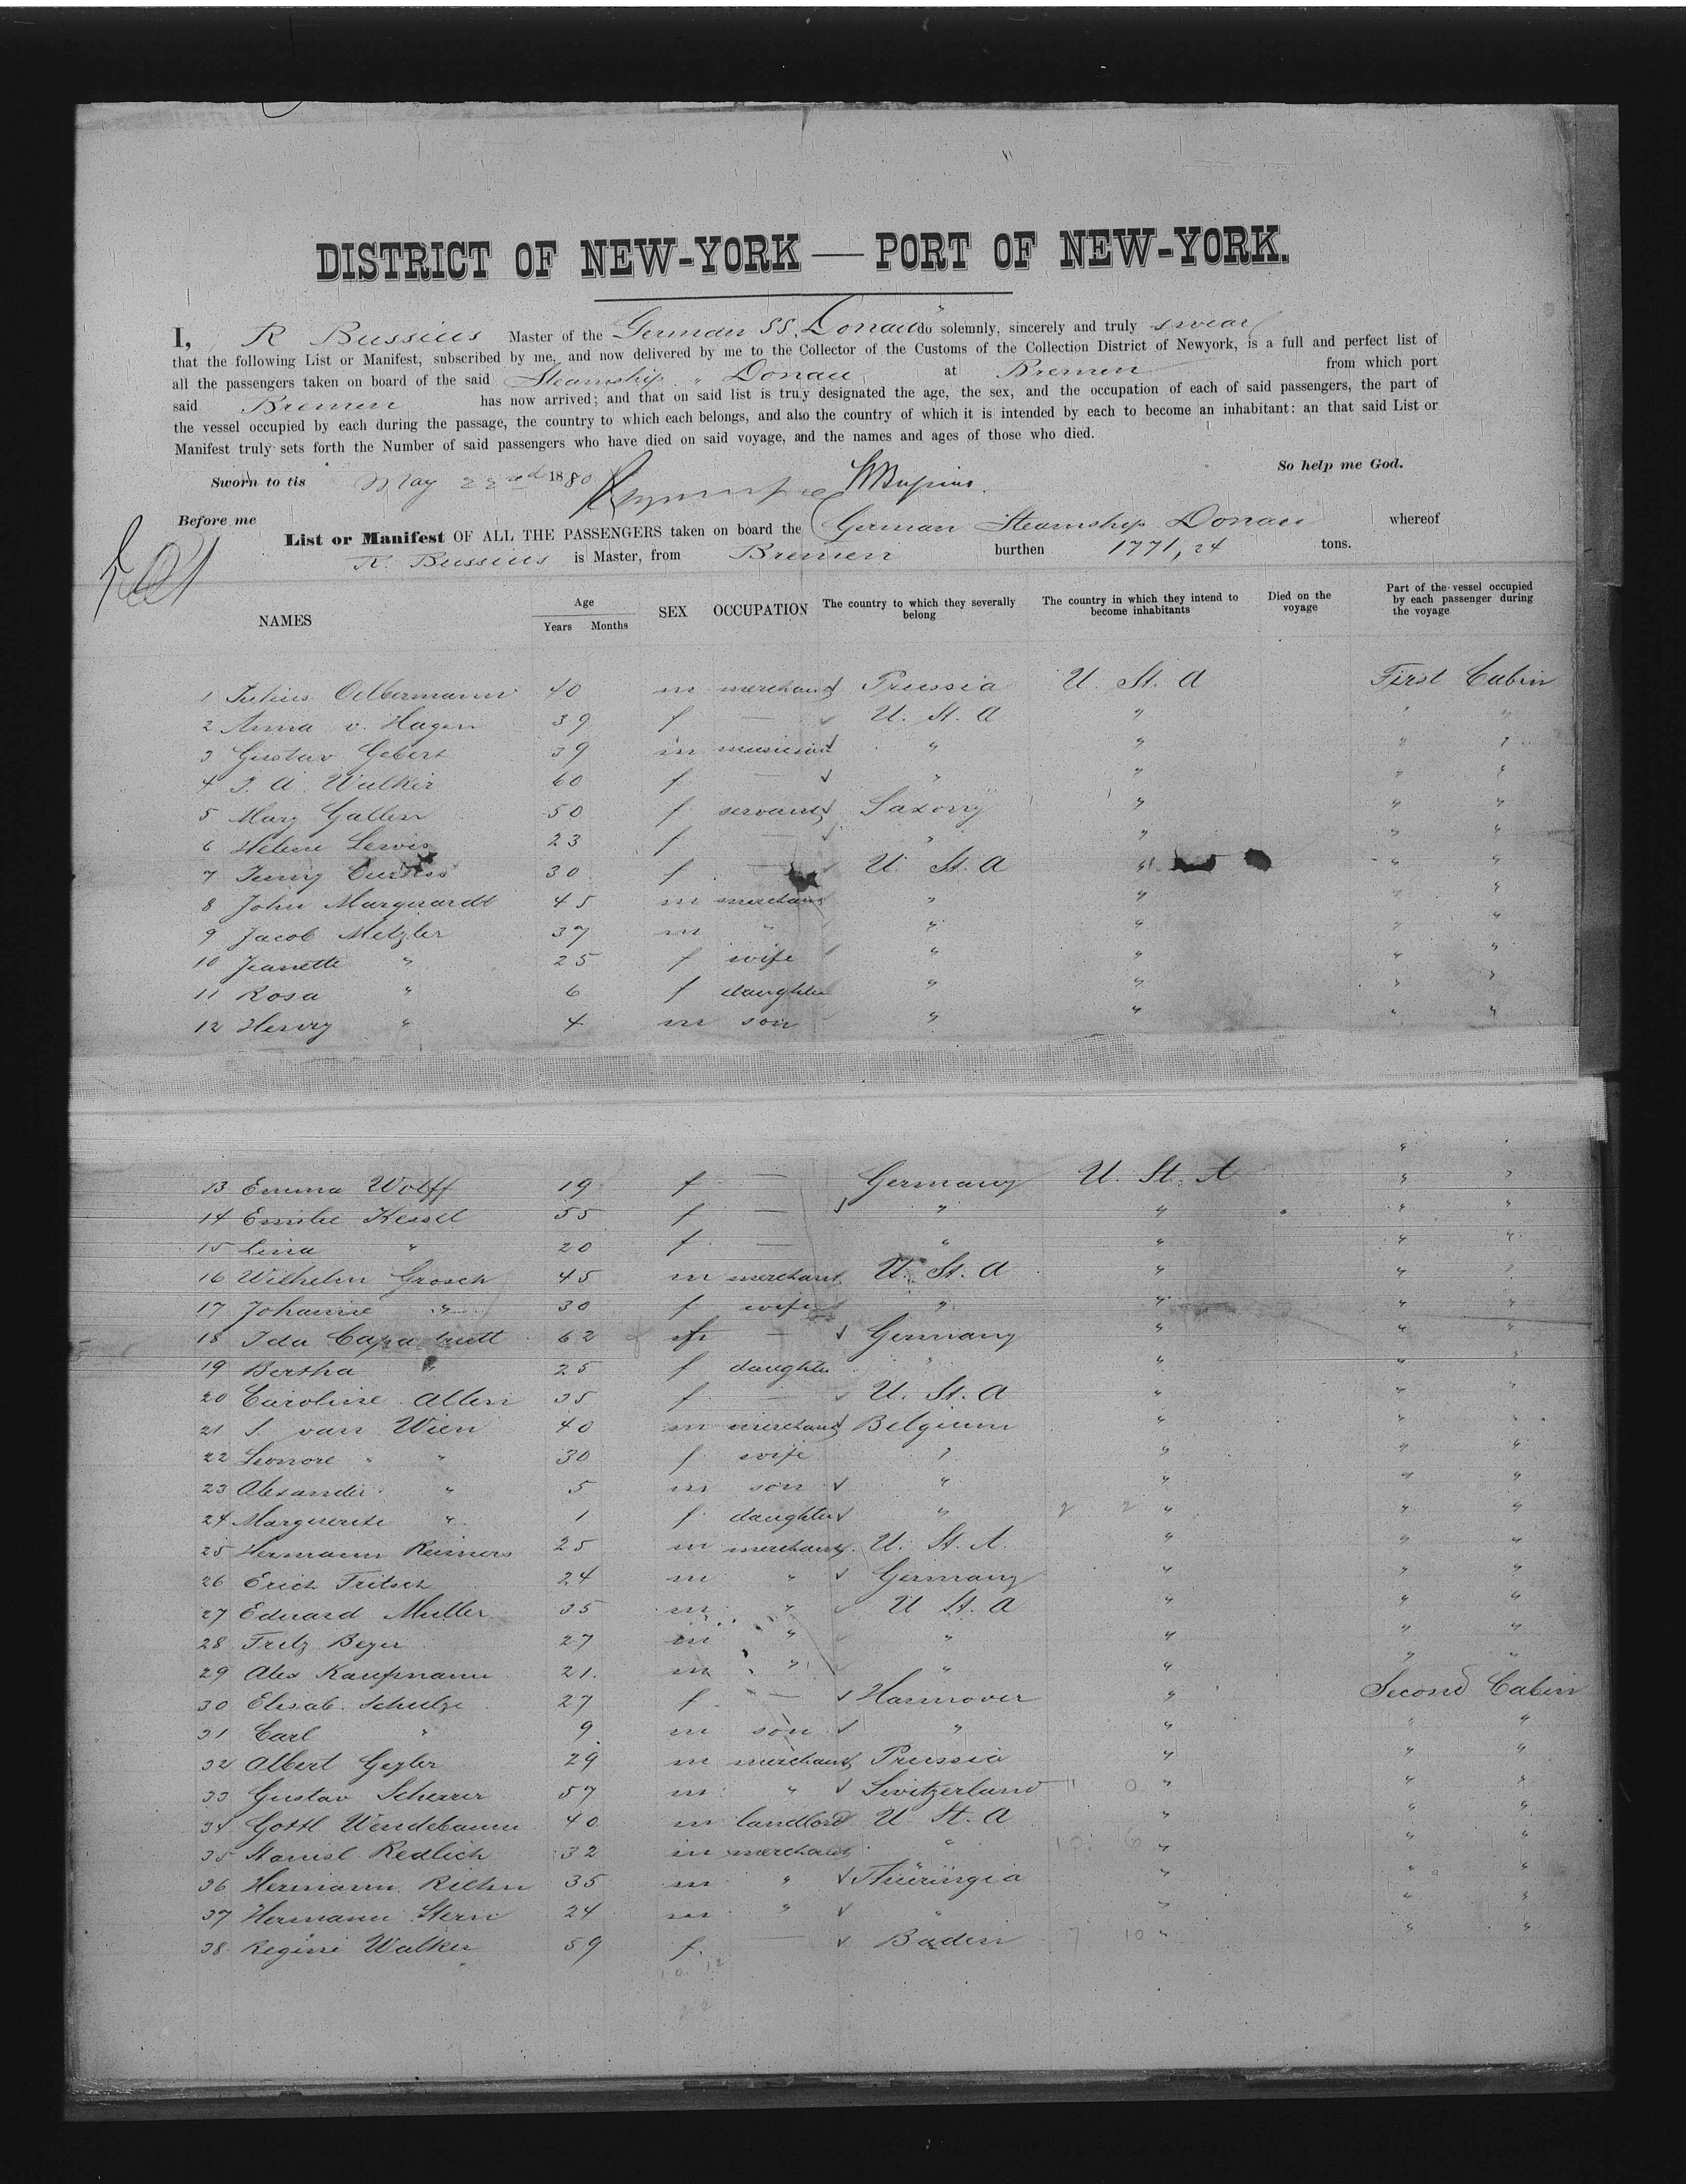 DISTRICT OF NEW-YORK — PORT OF NEW-YORK.
I, R Bussius Master of the German SS. "Donau" do solemnly, sincerely and truly swear
that the following List or Manifest, subscribed by me, and now delivered by me to the Collector of the Customs of the Collection District of Newyork, is a full and perfect list of
all the passengers taken on board of the said Steamship " Donau at Bremen from which port
said Bremen has now arrived; and that on said list is truly designated the age, the sex, and the occupation of each of said passengers, the part of
the vessel occupied by each during the passage, the country to which each belongs, and also the country of which it is intended by each to become an inhabitant: an that said List or
Manifest truly sets forth the Number of said passengers who have died on said voyage, and the names and ages of those who died.
So help me God.
Sworn to tis May 22nd 1880 RBussius.
Before me
List or Manifest OF ALL THE PASSENGERS taken on board the German Steamship Donau whereof
R. Bussius is Master, from Bremen burthen 1771,24 tons.
NAMES Age Years Months SEX OCCUPATION The country to which they severally belong The country in which they intend to become inhabitants Died on the voyage Part of the vessel occupied by each passenger during the voyage
1 Julius Oelbermann 40 m merchant Prussia U. St. A First Cabin
2 Anna v. Hagen 39 f — U. St. A " " "
3 Gustav Gebert 39 m musician " " " "
4 J. A. Walker 60 f — " " " "
5 Mary Gallen 50 f servant Saxony " " "
6 Helene Lewis 23 f — " " " "
7 Jenny Curtiss 30 f — U. St. A " " "
8 John Marquardt 45 m merchant " " " "
9 Jacob Metzler 37 m " " " " "
10 Jeanette " 25 f wife " " " "
11 Rosa " 6 f daughter " " " "
12 Henry " 4 m son " " " "
13 Emma Wolff 19 f — Germany U. St. A " "
14 Emilie Kessel 55 f — " " " "
15 Lina " 20 f — " " " "
16 Wilhelm Grosch 45 m merchant U. St. A " " "
17 Johanne " 30 f wife " " " "
18 Ida 62 f — Germany " " "
19 Bertha " 25 f daughter " " " "
20 Caroline Allen 35 f — U. St. A " " "
21 S. van Wien 40 m merchant Belgium " " "
22 Leonore " " 30 f wife " " " "
23 Alexander " 5 m son " " " "
24 Marguerite " 1 f daughter " " " "
25 Hermann Reimers 25 m merchant U. St. A " " "
26 Erich Fritsch 24 m " Germany " " "
27 Eduard Muller 35 m " U St. A " " "
28 Fritz Beyer 27 m " " " " "
29 Alex Kaufmann 21. m " " " " "
30 Elisab. Schulze 27 f — Hannover " Second Cabin
31 Carl " 9 m son " " " "
32 Albert Gegler 29 m merchant Prussia " " "
33 Gustav Scherrer 57 m " Switzerland " " "
34 Gottl Wendebaum 40 m landlord U. St. A " " "
35 Stanisl Redlich 32 m merchant " " " "
36 Hermann Riehm 35 m " Thüringia " " "
37 Hermann Stern 24 m " " " " "
38 Regine Walker 59 f. — Baden " " "